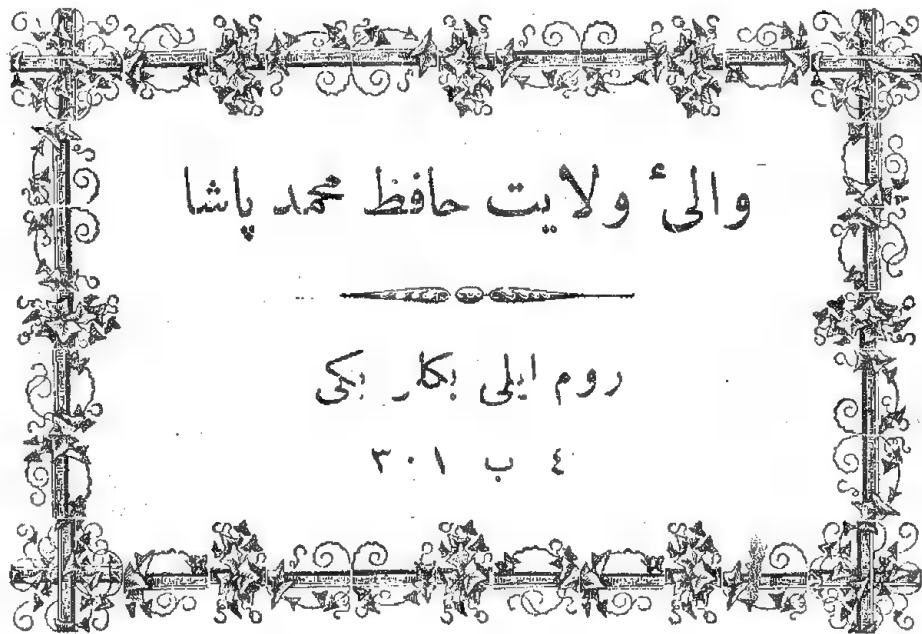 والئ ولايت حافظ محمد پاشا
روم ايلى بكلر بكى
٤ ب ٣٠١